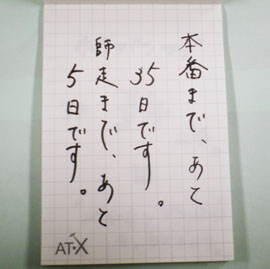 本番まで、あと
35日です。
師走まで、あと
5日です。
AT-X